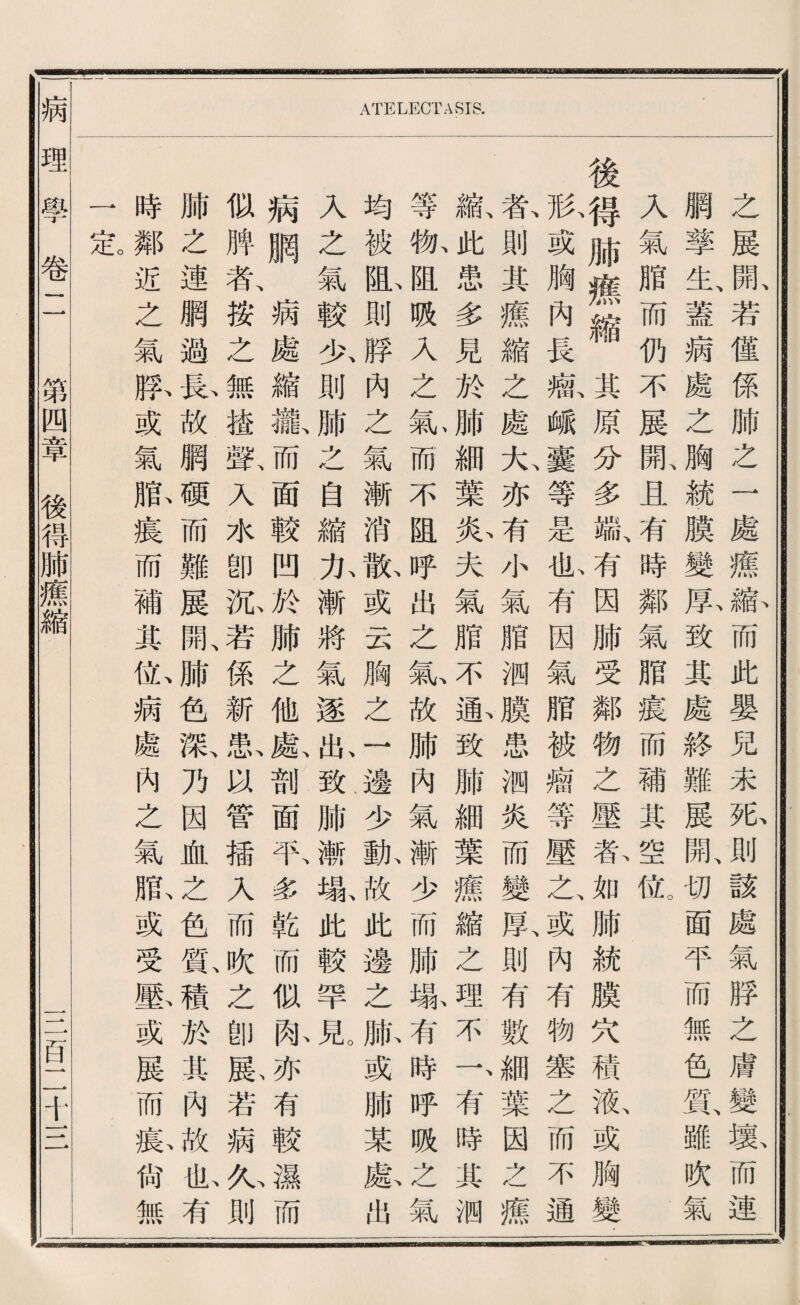 ATELECTASIS.
之展開、若僅係肺之一處癄縮、而此嬰兒未死、則該處氣脬之膚變壞、而連
膶孳生、蓋病處之胸統膜變厚、致其處終難展開、切面平而無色質、雖吹氣
入氣脂而仍不展開、且有時鄰氣脂㾗而補其空位。
後得肺癄縮 其原分多端、有因肺受鄰物之壓者、如肺統膜穴積液、或胸變
形、或胸內長瘤、衇囊等是也、有因氣脂被瘤等壓之、或內有物塞之而不通
者、則其癄縮之處大、亦有小氣脂泗膜患泗炎而變厚、則有數細葉因之癄
縮、此患多見於肺細葉炎、夫氣脂不通、致肺細葉癄縮之理不一、有時其泗
等物、阻吸入之氣、而不阻呼出之氣、故肺內氣漸少而肺塌、有時呼吸之氣
均被阻、則脬內之氣漸消散、或云胸之一邊少動、故此邊之肺、或肺某處、出
入之氣較少、則肺之自縮力、漸將氣逐出、致肺漸塌、此較罕見。
病膶 病處縮攏、而面較凹於肺之他處、剖面平、多乾而似肉、亦有較濕而
似脾者、按之無揸聲、入水卽沉、若係新患、以管插入而吹之卽展、若病久、則
肺之連膶過長、故膶硬而難展開、肺色深、乃因血之色質、積於其內故也、有
時鄰近之氣脬、或氣脂、㾗而補其位、病處內之氣脂、或受壓、或展而㾗、尙無
一定。
病理學 卷二 第四章 後得肺癄縮 三百二十三